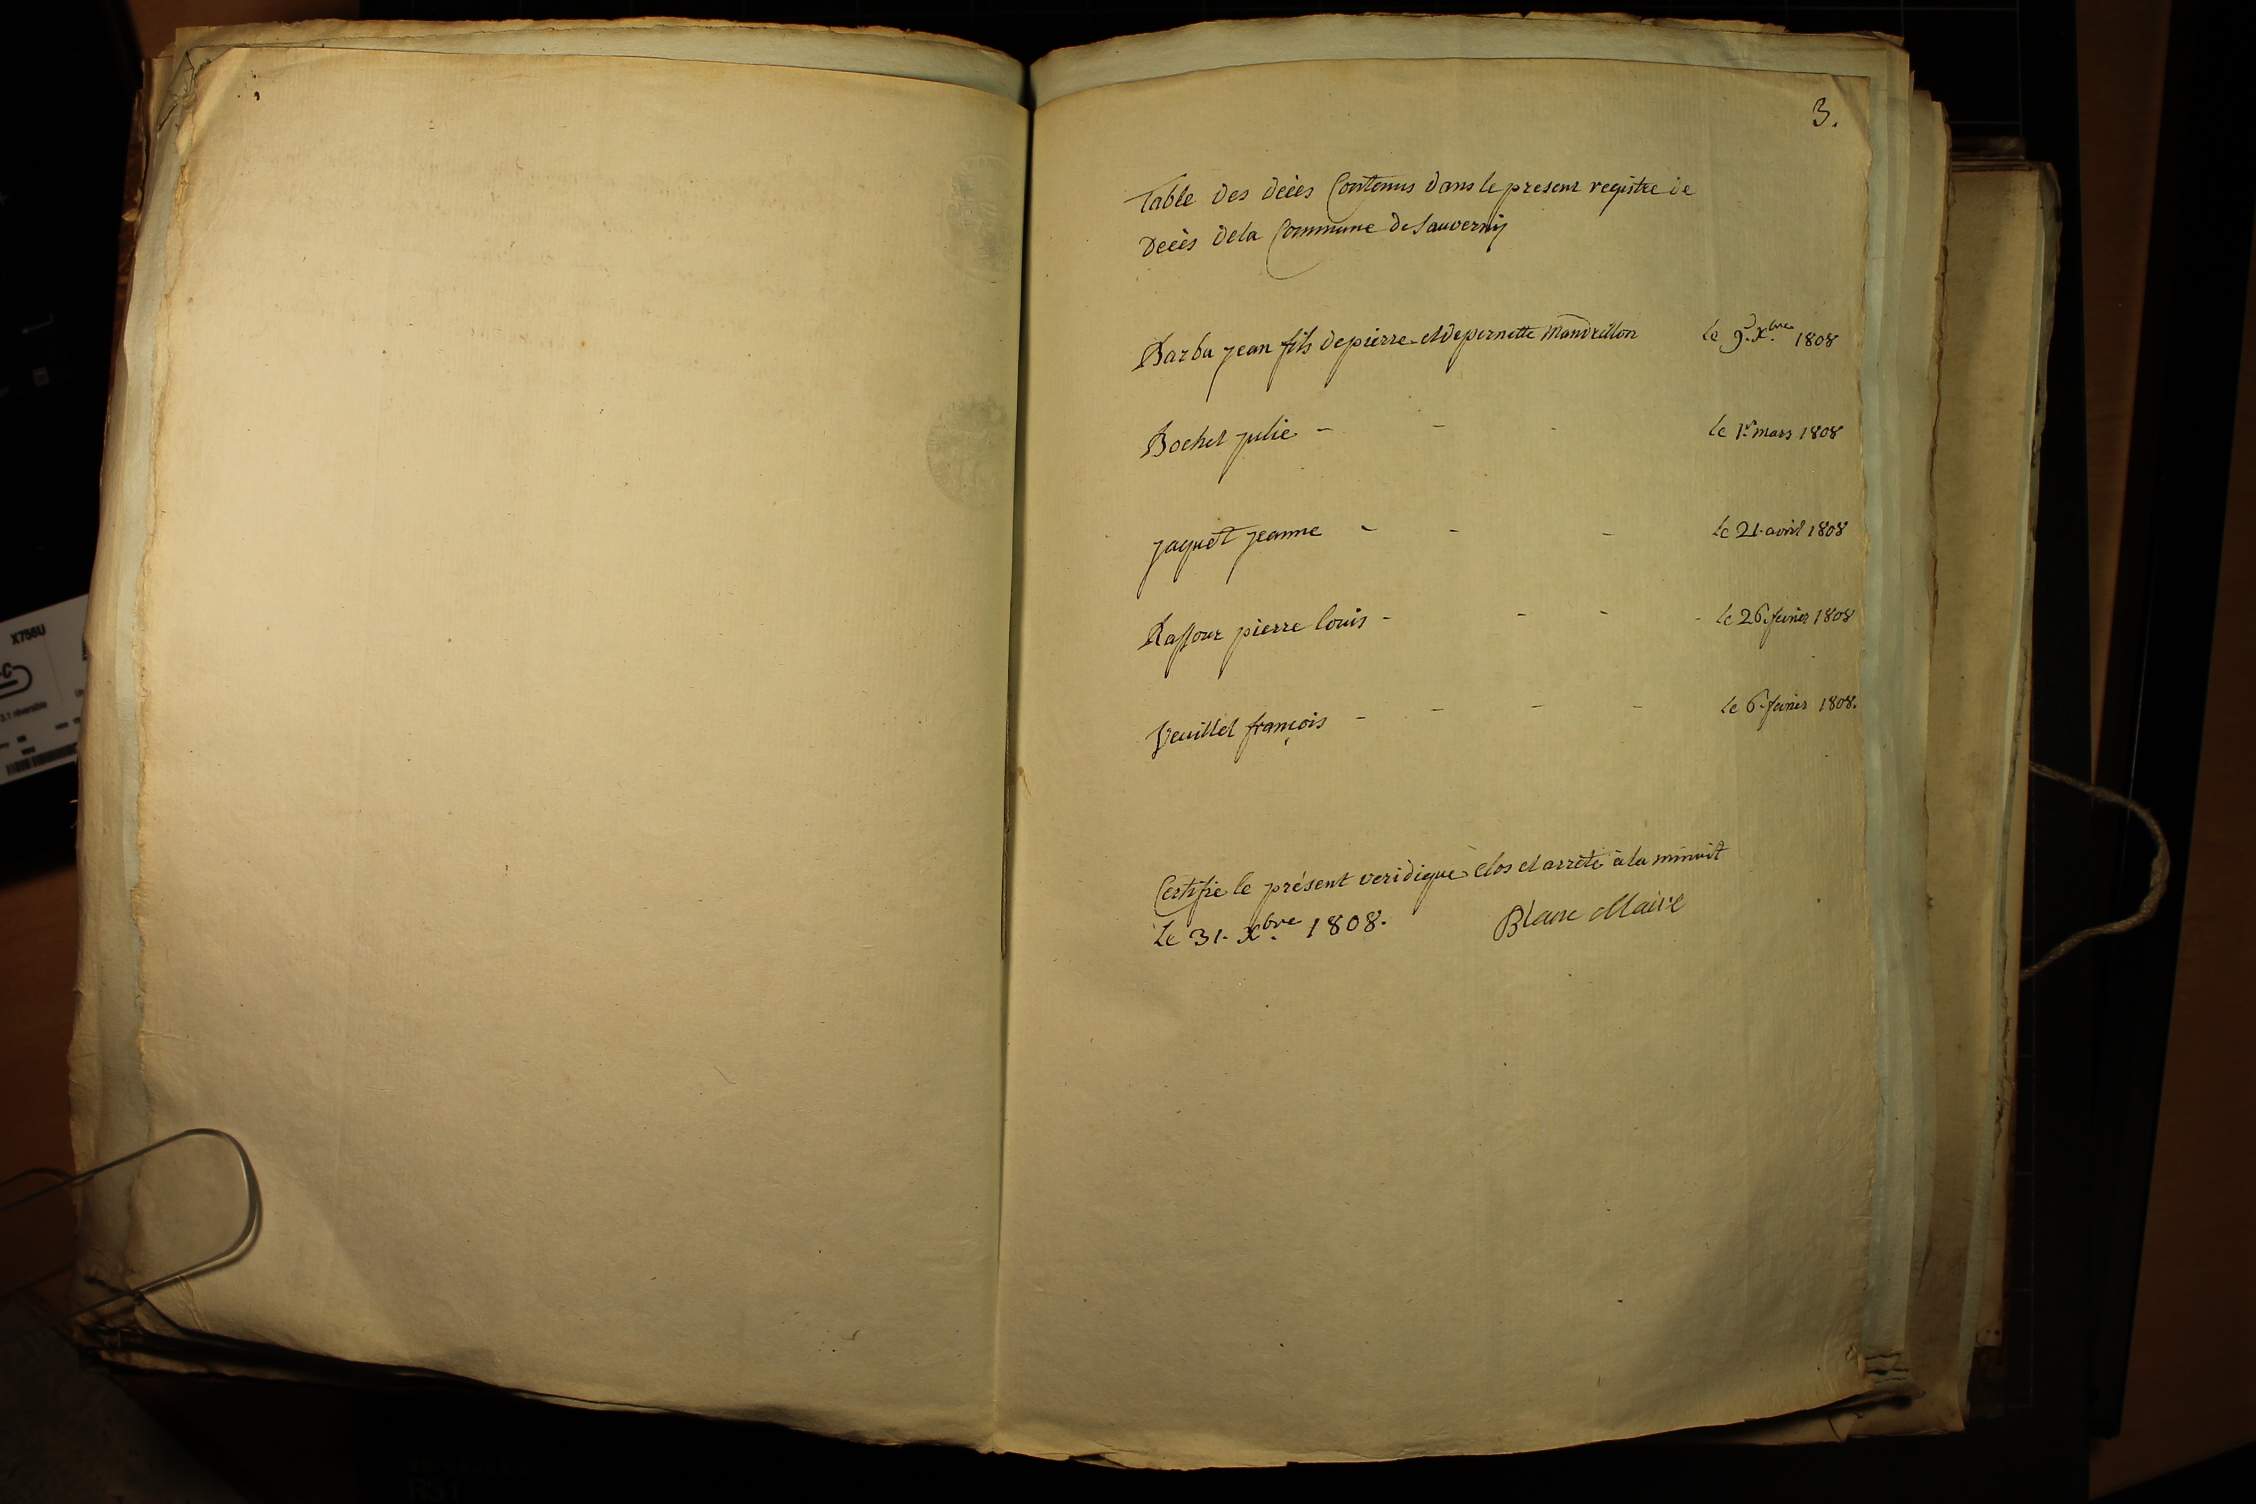 3.
Table des décès Contenus dans le present registre de
Décès de la Commune de Sauverny
Barbu jean fils de pierre et de pernette Mandrillon le 9. Xbre 1808
Bochet julie - - - le 1er mars 1808
jaquet jeanne - - - le 21. avril 1808
pierre louis - - - - le 26. fevrier 1808
Veuillet françois - - - - le 6. fevrier 1808.
Certifie le présent veridique clos et arrêté à la minuit
Le 31. Xbre 1808. Blanc Maire
X756U